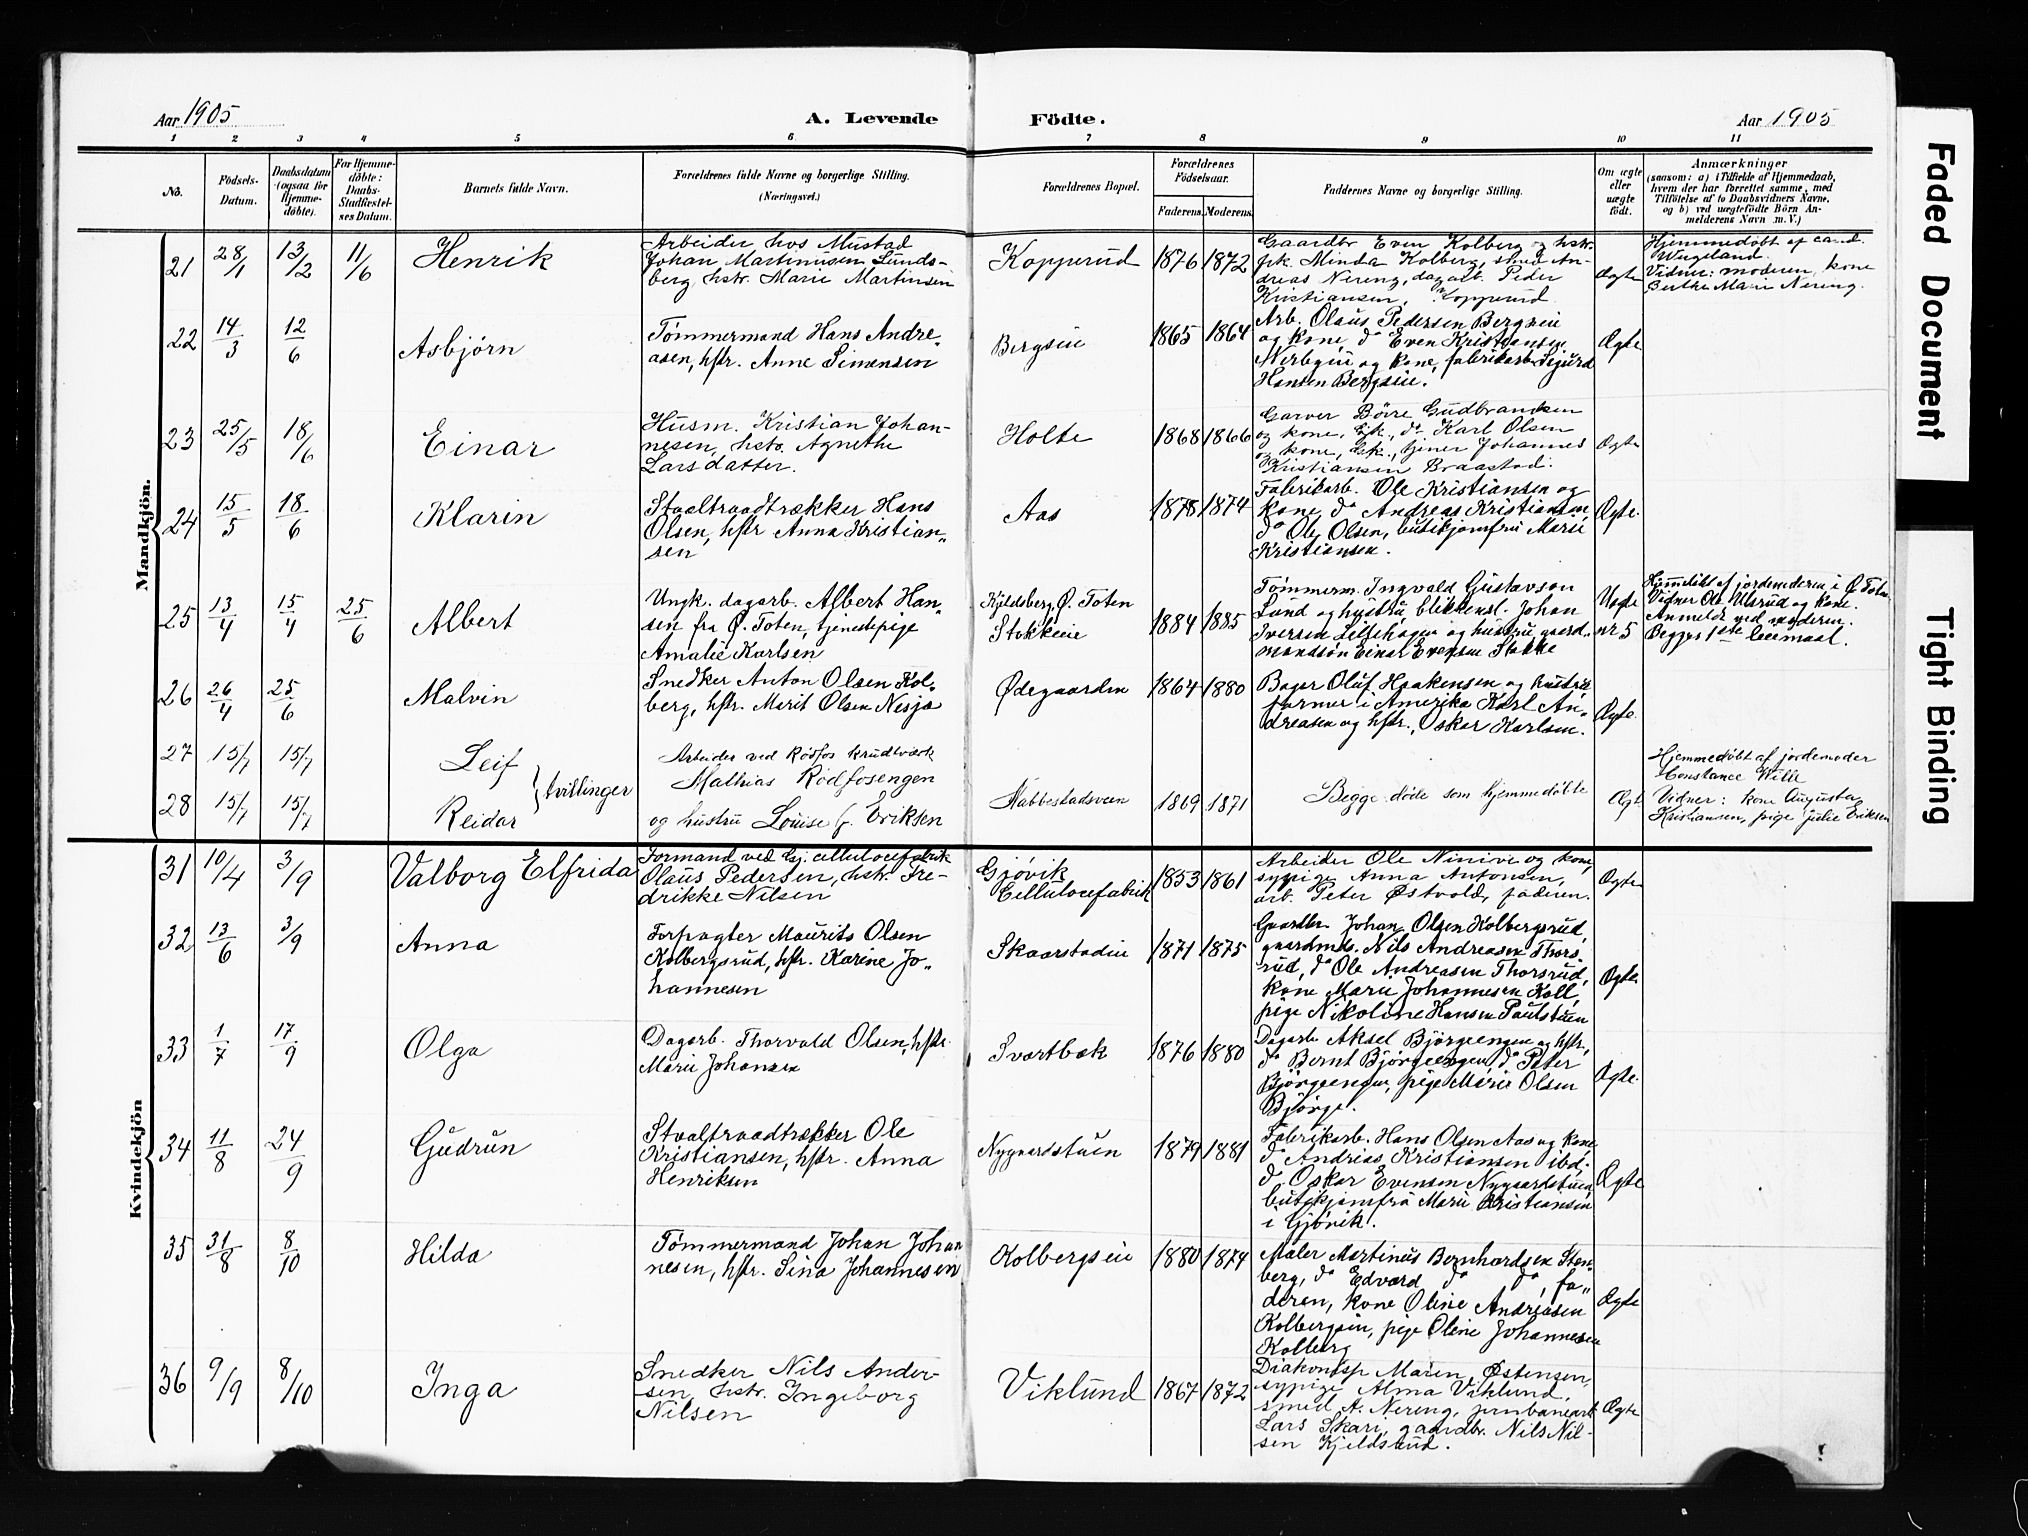 Aar 1905
A. Levende
Födte.
Aar 1905
1 2 3 4 5 6 7 8 9 10 11
No.
Födsels-Datum.
Daabsdatum (ogsaa for Hjemmedöbte).
For Hjemmedöbte: Daabs-Stadfæstelses Datum.
Barnets fulde Navn.
Forældrenes fulde Navne og borgerlige Stilling. (Næringsvei.)
Forældrenes Bopæl.
Forældrenes Födselsaar.
Faderens. Moderens.
Faddernes Navne og borgerlige Stilling.
Om ægte eller uægte födt.
Anmærkninger
(saasom: a) i Tilfælde af Hjemmedaab,
hvem der har forrettet samme, med
Tilföielse af to Daabsvidners Navne,
og b) ved uægtefödte Börn Anmelderens Navn m. V.)
Mandkjön.
21 28/1 13/2 11/6 Henrik
Arbeider hos Mustad
Johan Martinusen Lunds-
berg, hstr. Marie Martinsen
Kopperud 1876 1872
Gaardbr Even Kolberg og hstr.
frk. Minda Kolberg, smed An-
dreas Nereng, dagarb. Peder
Kristiansen, Kopperud
Ægte
Hjemmedøbt af cand.
Wegeland.
Vidner: moderen, kone
Berthe Marie Nereng.
22 14/3 12/6 Asbjørn
Tømmermand Hans Andre-
asen, hstr. Anne Simensen
Bergseie 1865 1864
Arb. Olaus Pedersen Bergseie
og kone, do Even Kristiansen
og kone, fabrikarb. Sigurd
Hansen Bergseie.
Ægte
23 25/5 18/6 Einar
Husm. Kristian Johan-
nesen, hstr. Agnethe
Larsdatter.
Holte 1868 1866
Garver Børre Gudbrandsen
og kone, Gjk., do Karl Olsen
og kone, Gjk., tjener Johannes
Kristiansen Braastad.
Ægte
24 15/5 18/6 Klarin
Staaltraadtrækker Hans
Olsen, hstr Anna Kristian-
sen
Aas 1878 1874
Fabrikarb. Ole Kristiansen og
kone, do Andreas Kristiansen
do Ole Olsen, butikjomfru Marie
Kristiansen.
Ægte.
25 13/4 15/4 25/6 Albert
Ungk. dagarb. Albert Han-
sen fra Ø. Toten, tjenestepige
Amalie Karlsen
Kyldsberg, Ø. Toten
Stokkeie 1884 1885
Tømmerm. Ingvald Gustavson
Lund og hustru, blikkensl. Johan
Iversen Lillehagen og hustru, gaard-
mandsøn Einar Evensen Stokke
Uægte
nr 5
Hjemmedøbt af jordemoderen i Ø. Toten
Vidner Ole Ulsrud og kone.
Anmeldt ved moderen.
Begges 1ste leiemaal.
26 26/4 25/6 Malvin
Snedker Anton Olsen Kol-
berg, hstr. Marit Olsen Nesje
Ødegaarden 1864 1880
Bager Oluf Haakensen og hustru
farmer i Amerika Karl An-
dreasen og hstr., Oskar Karlsen.
Ægte.
27 15/7 15/7 Leif
28 15/7 15/7 Reidar
tvillinger
Arbeider ved Rødfos Krudtværk
Mathias Rødfosengen
og hustru Louise f. Eriksen
Nabbestadsveen 1869 1871
Begge døde som hjemmedøbte
Ægte
Hjemmedøbt af jordemoder
Constance Wille
Vidner: kone Augusta
Kristiansen, pige Julie Eriksen
Kvindekjön
31 10/4 3/9 Valborg Elfrida
Formand ved Gj. cellulosefabrik
Olaus Pedersen, hstr. Fre-
drikke Nilsen
Gjøvik
Cellulosefabrik 1853 1861
Arbeider Ole Ninive og kone,
sypige Anna Antonsen,
arb. Peter Østvold, faderen.
Ægte
32 13/6 3/9 Anna
Forpagter Maurits Olsen
Kolbergsrud, hstr. Karine Jo-
hannesen
Skaarstadeie 1871 1875
Gaardbr. Johan Olsen Kolbergsrud,
gaardmds. Nils Andreasen Thors-
rud, do Ole Andreasen Thorsrud,
kone Marie Johannesen Koll,
pige Nikoline Hansen Paulstuen
Ægte
33 1/7 17/9 Olga
Dagarb. Thorvald Olsen, hstr.
Marie Johansen
Svartbæk 1876 1880
Dagarb Aksel Bjørgeengen og hstr,
do Bernt Bjørgeengen, do Peter
Bjørgeengen, pige Marie Olsen
Bjørge.
Ægte.
34 11/8 24/9 Gudrun
Staaltraadtrækker Ole
Kristiansen, hstr. Anna
Henriksen
Nygaardstuen 1879 1881
Fabrikarb. Hans Olsen Aas og kone,
do Andrias Kristiansen ibd,
do Oskar Evensen Nygaardstuen
butikjomfru Marie Kristiansen
i Gjøvik.
Ægte
35 31/8 8/10 Hilda
Tømmermand Johan Johan
nesen, hstr. Sina Johannesen
Kolbergseie 1880 1874
Maler Martinus Bernhardsen Sten-
berg, do Edvard do do, fa-
deren, kone Oline Andreasen
Kolbergseie, pige Oline Johannesen
Kolberg
Ægte
36 9/9 8/10 Inga
Snedker Nils Ander-
sen, hstr. Ingeborg
Nilsen
Viklund 1867 1872
Diakonisse Maren Østensen,
sypige Alma Viklund,
smed A. Nereng, jernbanearb
Lars Skari, gaardbr. Nils Nil-
sen Kjeldsrud.
Ægte
Faded Document
Tight Binding